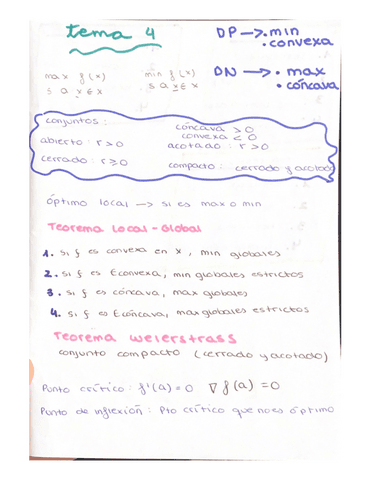 tema 4
DP → . min
. convexa
max f(x)
s a x ∈ X
min f(x)
s a x ∈ X
DN → . max
. cóncava
conjuntos:
cóncava > 0
convexa < 0
abierto: r > 0
acotado: r > 0
cerrado: r ≥ 0
compacto: cerrado y acotado
óptimo local → si es max o min
Teorema Local - Global
1. si f es convexa en X, min globales
2. si f es Econvexa, min globales estrictos
3. si f es cóncava, max globales
4. si f es Ecóncava, max globales estrictos
Teorema weierstrass
conjunto compacto (cerrado y acotado)
Punto crítico: f'(a) = 0 ∇f(a) = 0
Punto de inflexión: Pto crítico que no es óptimo